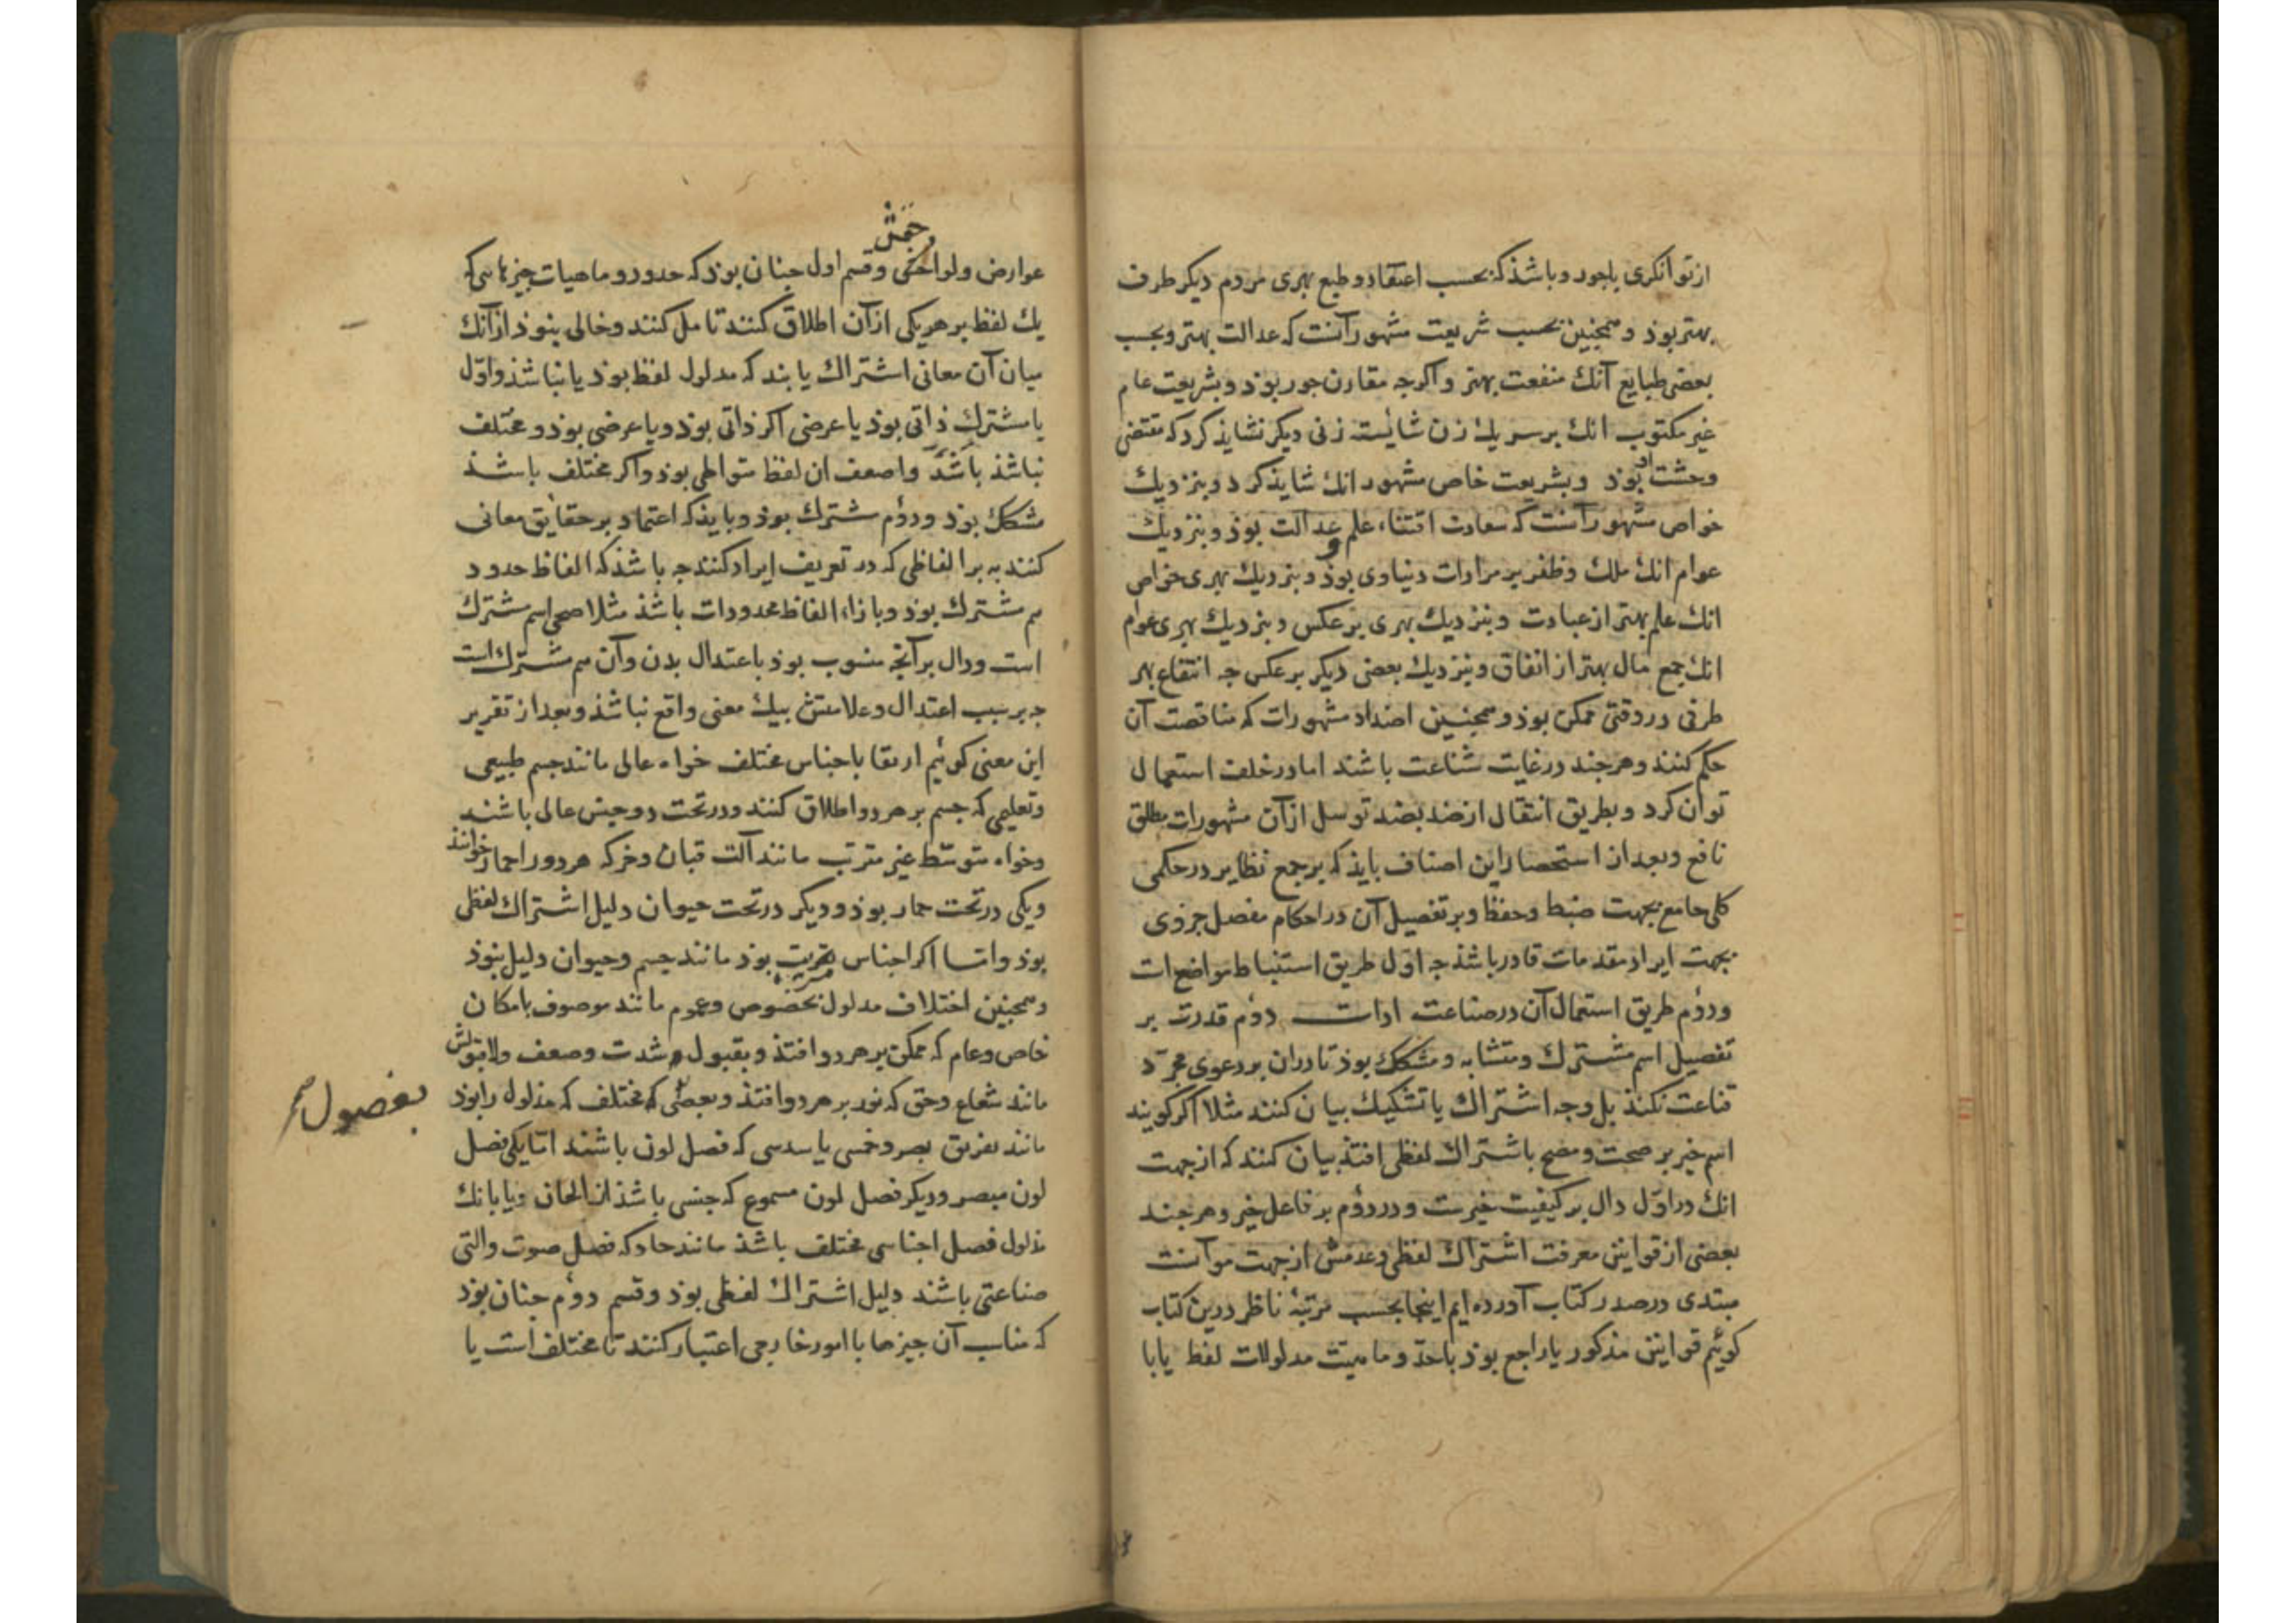 از توانکری باجور و باشذ که بحسب اعتقاد و طبع بهری مردم دیکر طرف
بهتر بوذ و همجنین بحسب شریعت مشهور آنست که عدالت بهتر و بحسب
بعضی طبایع آنك منفعت بهتر و اکرجه مقارن جور بوذ و بشریعت عام
غیر مکتوب انك بر سر یك زن شایسته زنی دیکر نشایذ کرد که مقتضی
وحشت او بوذ و بشریعت خاص مشهور انك شایذ کرد و بنزدیك
خواص مشهور آنست که سعادت اقتناء علم و عدالت بوذ و بنزدیك
عوام انك ملك و ظفر بر مرادات دنیاوی بوذ و بنزدیك بهری خواص
انك علم بهتر از عبادت و بنزدیك بهری بر عکس و بنزدیك بهری عوام
انك جمع مال بهتر از انفاق و بنزدیك بعضی دیکر بر عکس جه انتفاع بهر
طرفی در وقتی ممکن بوذ و همجنین اضداد مشهورات که مناقضت آن
حکم کنند و هرجند در غایت شناعت باشند اما در خلف استعمال
توان کرد و بطریق انتقال از ضد بضد توسل از آن مشهورات مطلق
نافع و بعد از استحضار این اصناف بایذ که بر جمع نظایر در حکمی
کلی جامع بجهت ضبط و حفظ و بر تفصیل آن در احکام مفصل جزوی
بجهت ایراد مقدمات قادر باشذ جه اول طریق استنباط مواضع ات
و دوم طریق استعمال آن در صناعت ادات دوم قدرت بر
تفصیل اسم مشترك و متشابه و مشکك بوذ تا دران بر دعوی مجرّد
قناعت نکنذ بل وجه اشتراك یا تشکیك بیان کنند مثلا اکر کویند
اسم خیر بر صحت و مصح باشتراك لفظی افتذ بیان کنند که از جهت
انك در اوّل دال بر کیفیت خیرست و در دوم بر فاعل خیر و هرجند
بعضی از قوانین معرفت اشتراك لفظی و عدمش از جهت موآنست
مبتدی در صدر کتاب آورده ایم اینجا بحسب مرتبۀ ناظر درین کتاب
کوئیم قوانین مذکور یا راجع بوذ با حدّ و ماهیت مدلولات لفظ یا با
عوارض و لواحقش و قسم اول جنان بوذ که حدود و ماهیات جیزهایی که
یك لفظ بر هریکی از آن اطلاق کنند تامل کنند و خالی نبوذ از آنك
میان آن معانی اشتراك یابند که مدلول لفظ بوذ یا نباشذ و اوّل
یا مشترك ذاتی بوذ یا عرضی اکر ذاتی بوذ و یا عرضی بوذ و مختلف
نباشذ باشدّ و اضعف ان لفظ متواطی بوذ و اکر مختلف باشذ
مشکك بوذ و دوم مشترك بوذ و بایذ که اعتماد بر حقایق معانی
کنند نه بر الفاظی که در تعریف ایراد کنند جه باشذ که الفاظ حدود
هم مشترك بوذ و بازاء الفاظ محدودات باشذ مثلا صحی اسم مشترك
است و دال بر آنچه منسوب بوذ باعتدال بدن و آن هم مشترك است
جه بر سبب اعتدال و علامتش بیك معنی واقع نباشذ و بعد از تقریر
این معنی کوئیم ارتقا باجناس مختلف خواه عالی مانند جسم طبیعی
و تعلیمی که جسم بر هر دو اطلاق کنند و در تحت دو جنس عالی باشند
و خواه متوسّط غیر مترتب مانند آلت قبان و خر که هر دو را حمار خوانند
و یکی در تحت جماد بوذ و دیکر در تحت حیوان دلیل اشتراك لفظی
بوذ و اما اکر اجناس مترتب بوذ مانند جسم و حیوان دلیل نبوذ
و همجنین اختلاف مدلول بخصوص و عموم مانند موصوف بامکان
خاص و عام که ممکن بر هر دو افتذ و بقبول شدت و ضعف و لاقبولش
مانند شعاع و حق که نور بر هر دو افتذ و بعضی که مختلف که مذلول را بوذ
بفصول صح
مانند تفریق بصر و خمسی یا سدسی که فصل لون باشند اما یکی فصل
لون مبصر و دیکر فصل لون مسموع که جنسی باشذ از الحان و یا بانك
مذلول فصل اجناسی مختلف باشذ مانند حاد که فصل صوت و التی
صناعتی باشند دلیل اشتراك لفظی بوذ و قسم دوم جنان بوذ
که مناسب آن جیزها با امور خارجی اعتبار کنند تا مختلف است یا